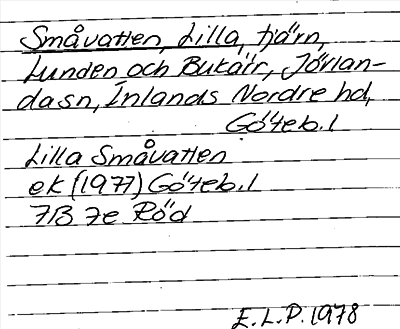 Småvatten, Lilla, tjärn,
Lunden och Bukärr, Jörlan-
da sn, Inlands Nordre hd,
Göteb. l
Lilla Småvatten
ek (1977) Göteb. l
7B 7e Röd
E.L.P. 1978